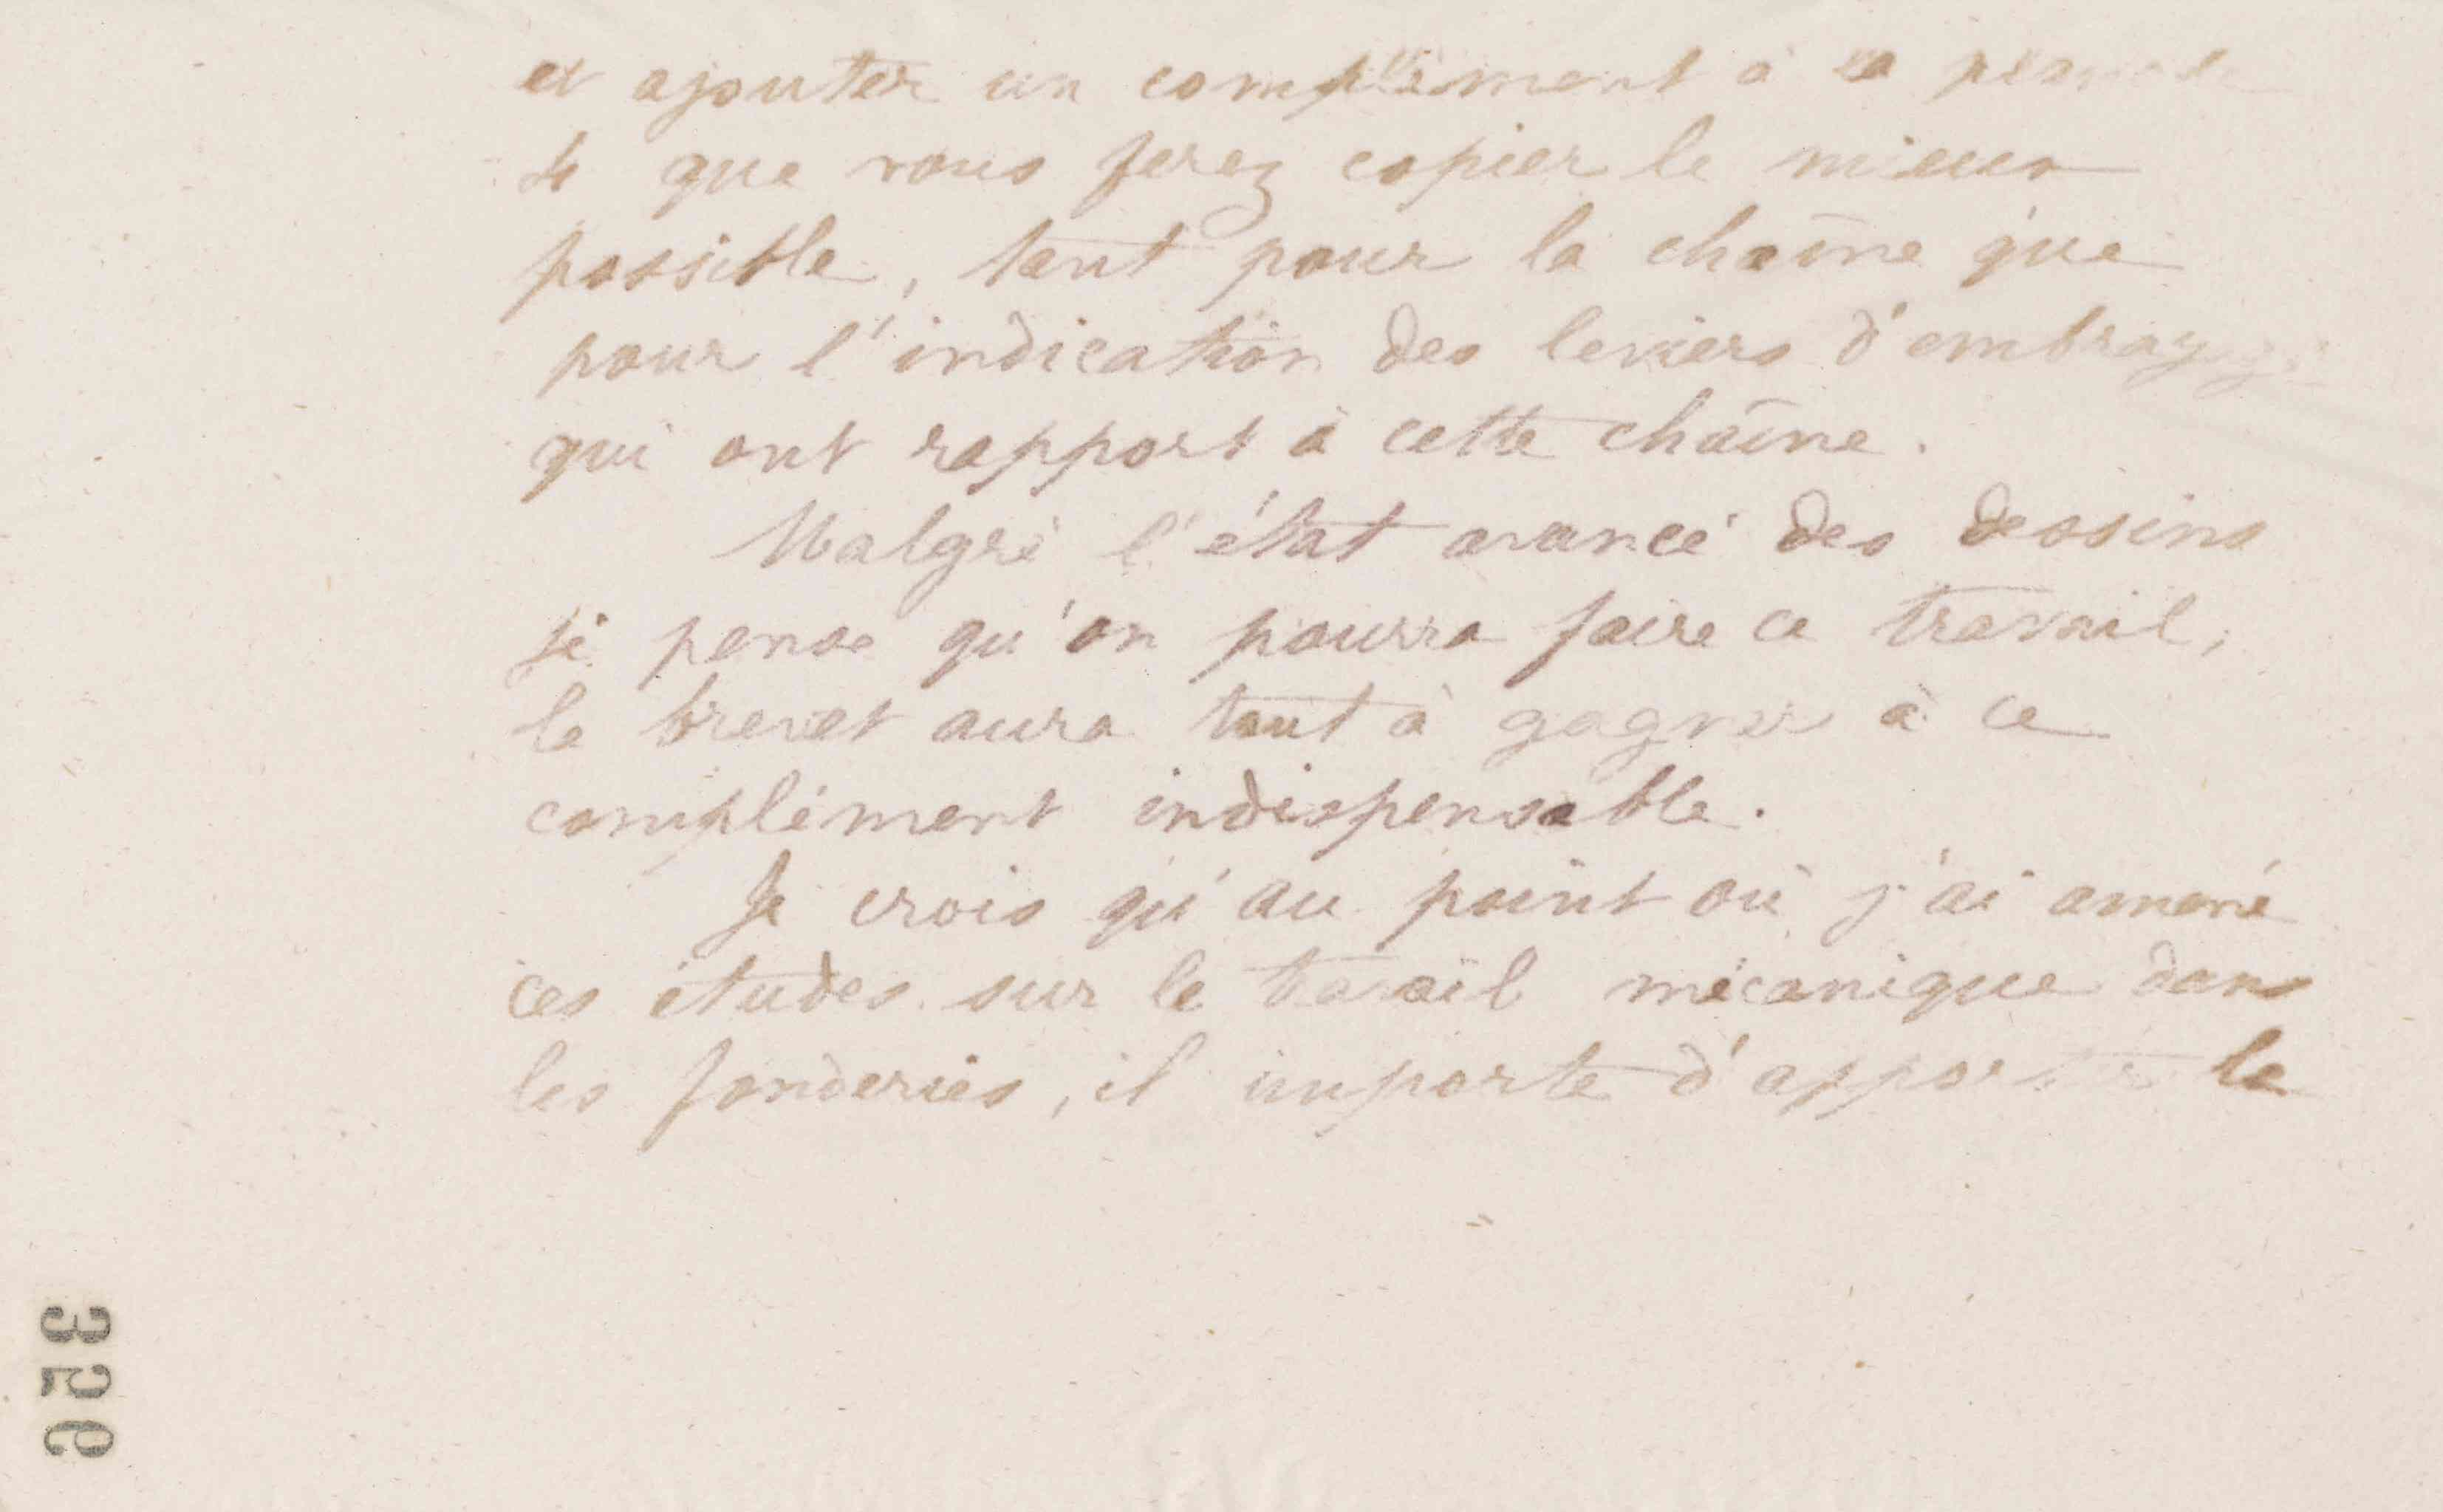 et ajouter un complément à la planche
4 que vous ferez copier le mieux
possible, tant pour la chaîne que
pour l'indication des leviers d'embrayage
qui ont rapport à cette chaîne.
Malgré l'état avancé des dessins
je pense qu'on pourra faire ce travail,
le brevet aura tout à gagner à ce
complément indispensable.
Je crois qu'au point où j'ai amené
ces études sur le travail mécanique dans
les fonderies, il importe d'apporter le
356